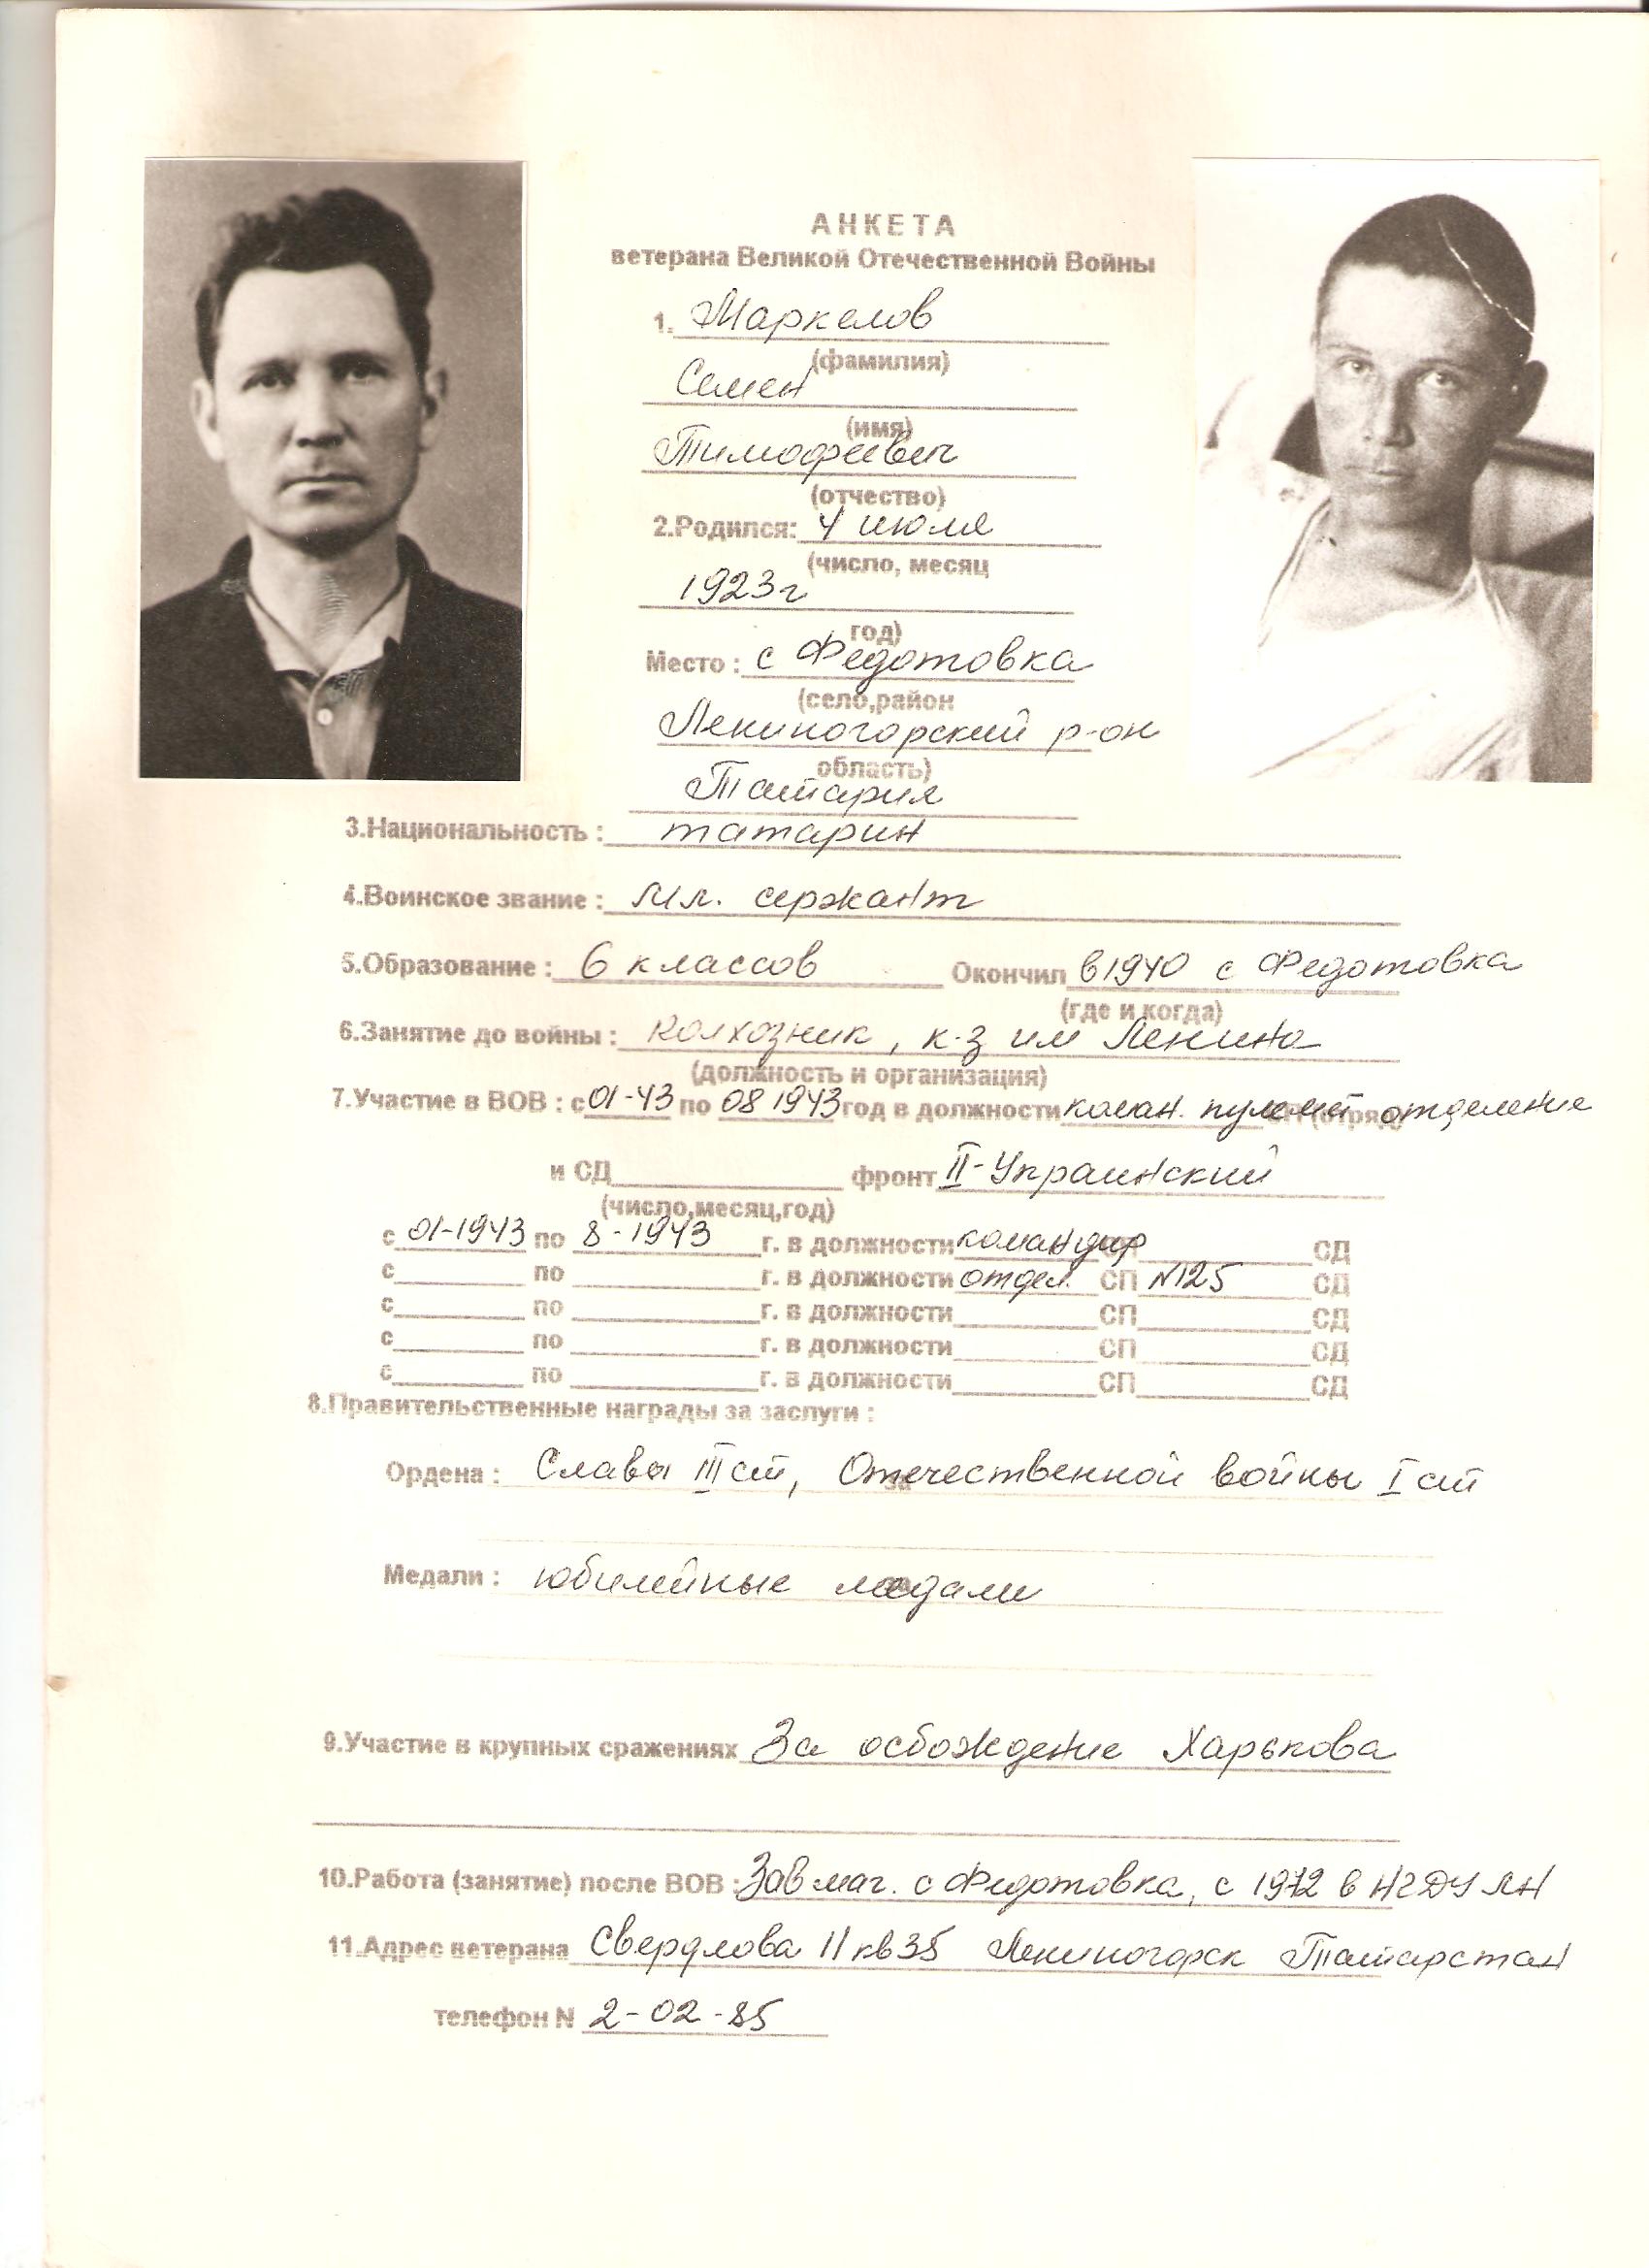 АНКЕТА
ветерана Великой Отечественной Войны
1. Маркелов
(фамилия)
Семен
(имя)
Тимофеевич
(отчество)
2.Родился: 4 июля
(число, месяц
1923г
год)
Место : с Федотовка
(село,район
Лениногорский р-он
область)
Татария
3.Национальность : татарин
4.Воинское звание : мл. сержант
5.Образование : 6 классов Окончил в 1940 с Федотовка
(где и когда)
6.Занятие до войны : колхозник, к-з им Ленина
(должность и организация)
7.Участие в ВОВ : с 01-43 по 08 1943 год в должности коман. пулемет отделение
и СД фронт II-Украинский
(число,месяц,год)
с 01-1943 по 8-1943 г. в должности командир СД
с по г. в должности отдел. СП №125 СД
с по г. в должности СП СД
с по г. в должности СП СД
с по г. в должности СП СД
8.Правительственные награды за заслуги :
Ордена : Славы III ст, Отечественной войны I ст
Медали : юбилейные медали
9.Участие в крупных сражениях За осбождение Харькова
10.Работа (занятие) после ВОВ : Зав маг. с Федотовка, с 1972 в НГДУ ЛН
11.Адрес ветерана Свердлова 11 кв 35 Лениногорск Татарстан
телефон N 2-02-85